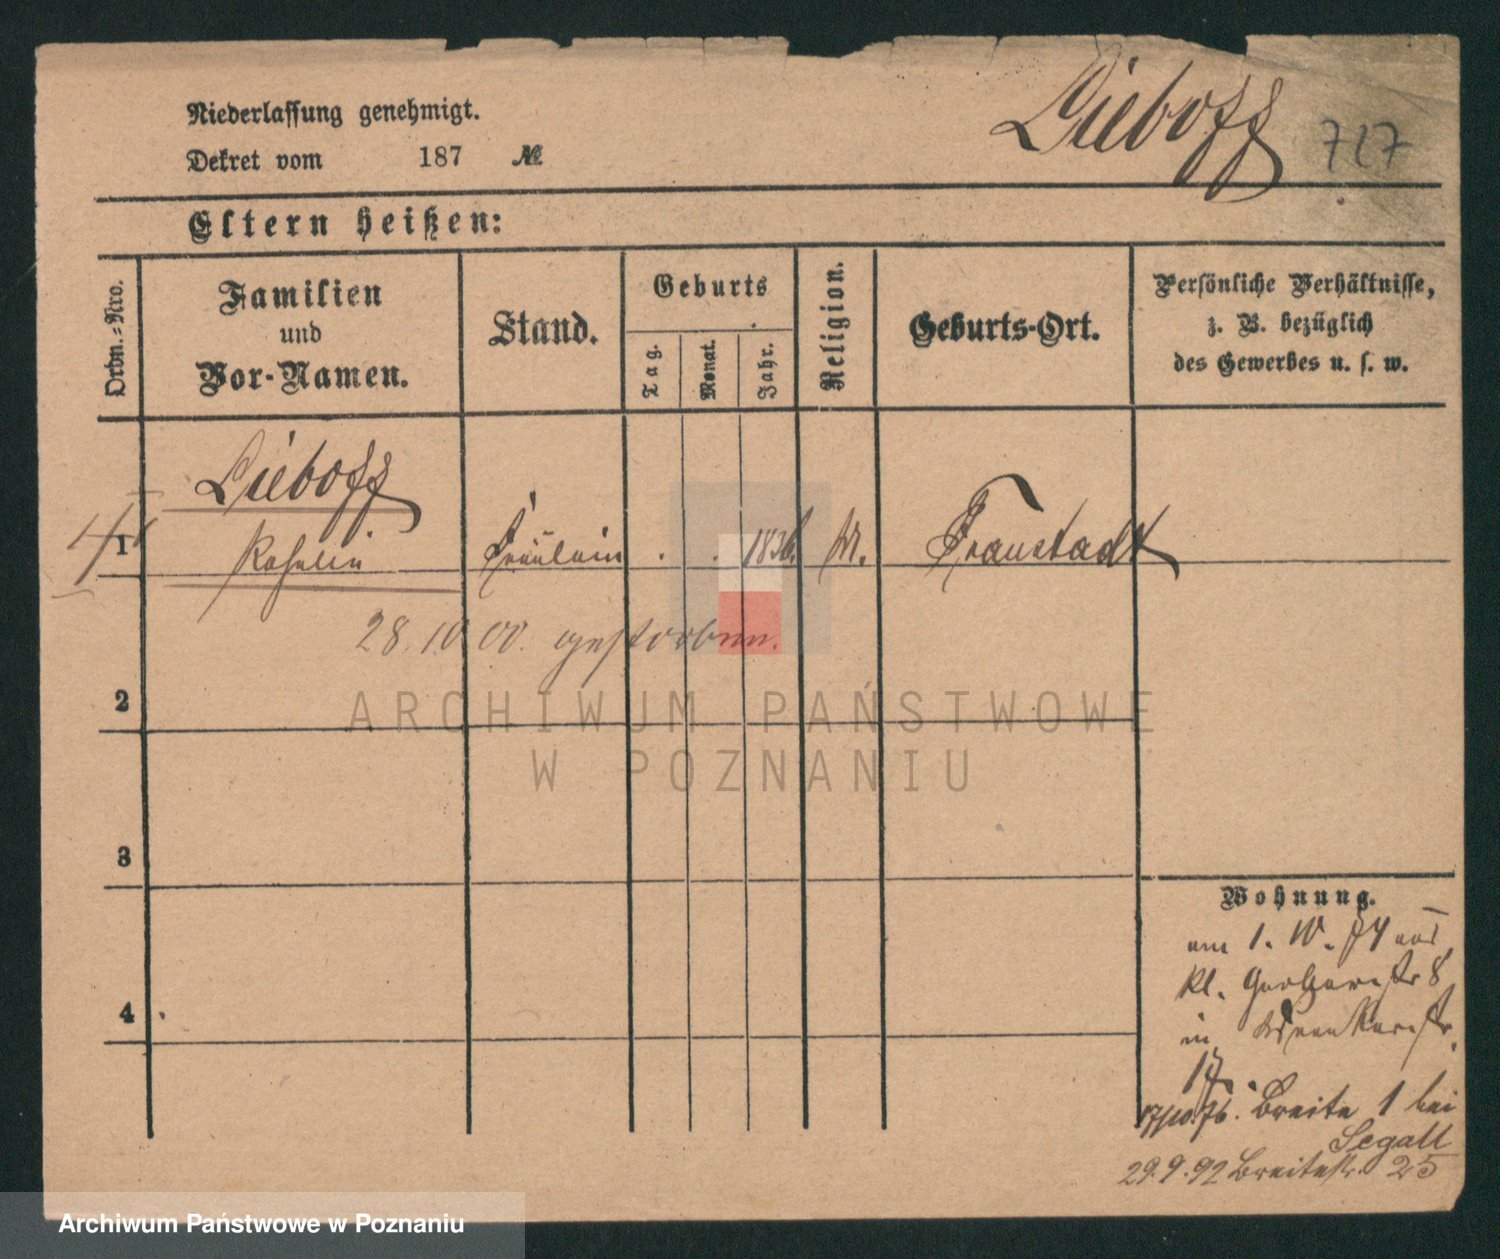 Niederlassung genehmigt.
Dekret vom 187 №
Lieboff 717
Eltern heißen:
Ordn.-Nro.
Familien
und
Vor-Namen.
Stand.
Geburts
Tag.
Monat.
Jahr.
Religion.
Geburts-Ort.
Persönliche Verhältnisse,
z. B. bezüglich
des Gewerbes u. s. w.
Lieboff
1 Rosalie Fräulein . . 1836. Fraustadt
28. 10. 00. gestorben.
2
3
4
Wohnung.
am 1. 10. 74 aus
kl. Gerberstr 8
in
17.
17/10.76. Breite 1 bei
Segall
29.9.92 Breitestr. 25
ARCHIWUM PAŃSTWOWE
W POZNANIU
Archiwum Państwowe w Poznaniu